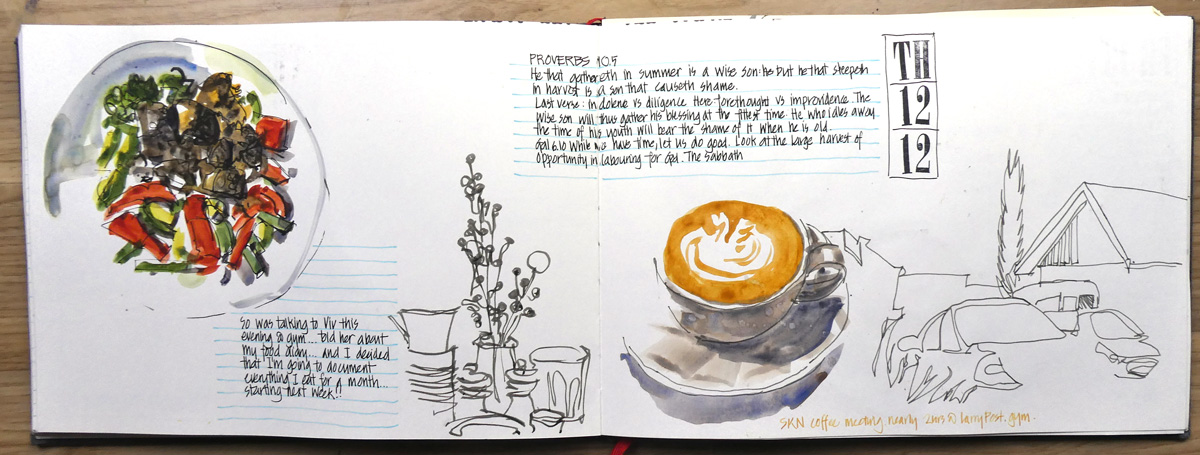 PROVERBS 10.5
He that gathereth in summer is a wise son: he but he that sleepeth
in harvest is a son that causeth shame.
Last verse: Indolence vs diligence Here forethought vs improvidence. The
wise son will thus gather his blessing at the fittest time. He who idles away
the time of his youth will bear the shame of it when he is old.
Gal 6.10 While we have time, let us do good. Look at the large harvest of
opportunity in labouring for God. The Sabbath
TH
12
12
So was talking to Viv this
evening @ gym... told her about
my food diary... and I decided
that I'm going to document
everything I eat for a month...
starting next week!!
SKN coffee meeting. nearly @ Larry Post. gym.